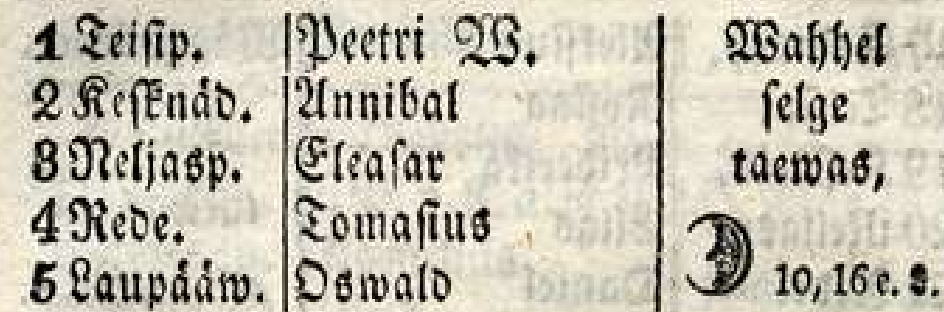 1 Teisip. Peetri W. Wahhel
2 Keſknäd. Annibal ſelge
3 Neljasp. Eleaſar taewas,
4 Rede. Tomaſius
5 Laupääw. Oswald 10, 16 e.